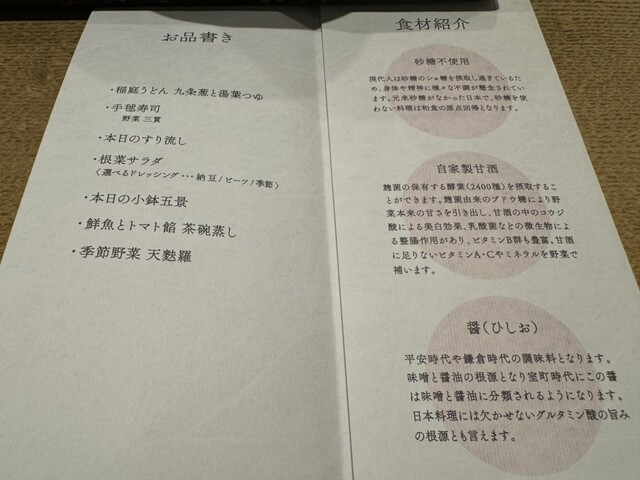 お品書き
・稲庭うどん 九条葱と湯葉つゆ
・手毬寿司
野菜 三貫
・本日のすり流し
・根菜サラダ
〈選べるドレッシング・・・納豆/ビーツ/季節〉
・本日の小鉢五景
・鮮魚とトマト餡 茶碗蒸し
・季節野菜 天麩羅
食材紹介
砂糖不使用
現代人は砂糖のショ糖を摂取し過ぎているた
め、身体や精神に様々な不調が懸念されてい
ます。元来砂糖がなかった日本で、砂糖を使
わない料理は和食の原点回帰となります。
自家製甘酒
麹菌の保有する酵素(2400種)を摂取するこ
とができます。麹菌由来のブドウ糖により野
菜本来の甘さを引き出し、甘酒の中のコウジ
酸による美白効果、乳酸菌などの微生物によ
る整腸作用があり、ビタミンB群も豊富。甘酒
に足りないビタミンA・Cやミネラルを野菜で
補います。
醤(ひしお)
平安時代や鎌倉時代の調味料となります。
味噌と醤油の根源となり室町時代にこの醤
は味噌と醤油に分類されるようになります。
日本料理には欠かせないグルタミン酸の旨み
の根源とも言えます。